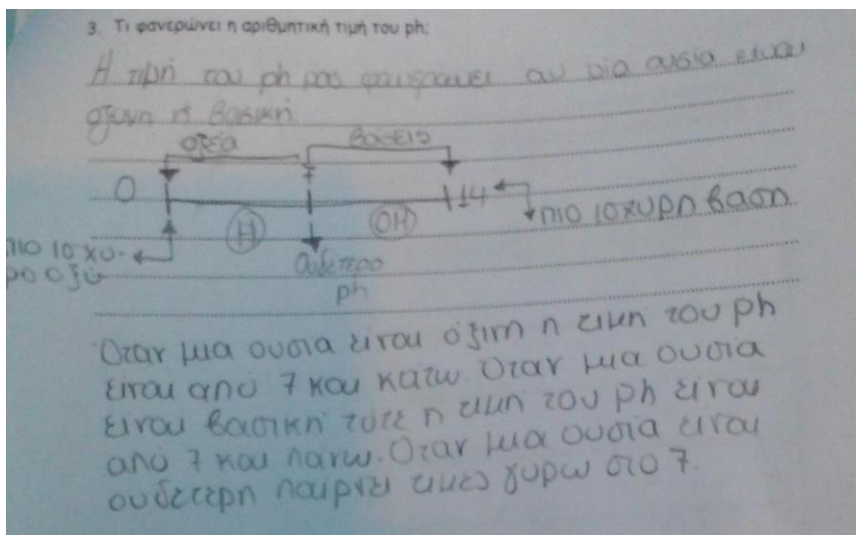 3. Τι φανερώνει η αριθμητική τιμή του ph;
Η τιμή του ph μας φανερωνει αν μία ουσία είναι
οξινη ή βασική
οξέα βάσεις
0 7 14 πιο ισχυρη βαση
Η ΟΗ
πιο ισχυ-
ρο οξύ
ουδετερο
ph
Οταν μια ουσια ειναι όξινη η τιμη του ph
ειναι απο 7 και κατω. Οταν μια ουσια
ειναι βασικη τοτε η τιμη του ph ειναι
απο 7 και πανω. Οταν μια ουσια ειναι
ουδετερη παιρνει τιμες γυρω στο 7.